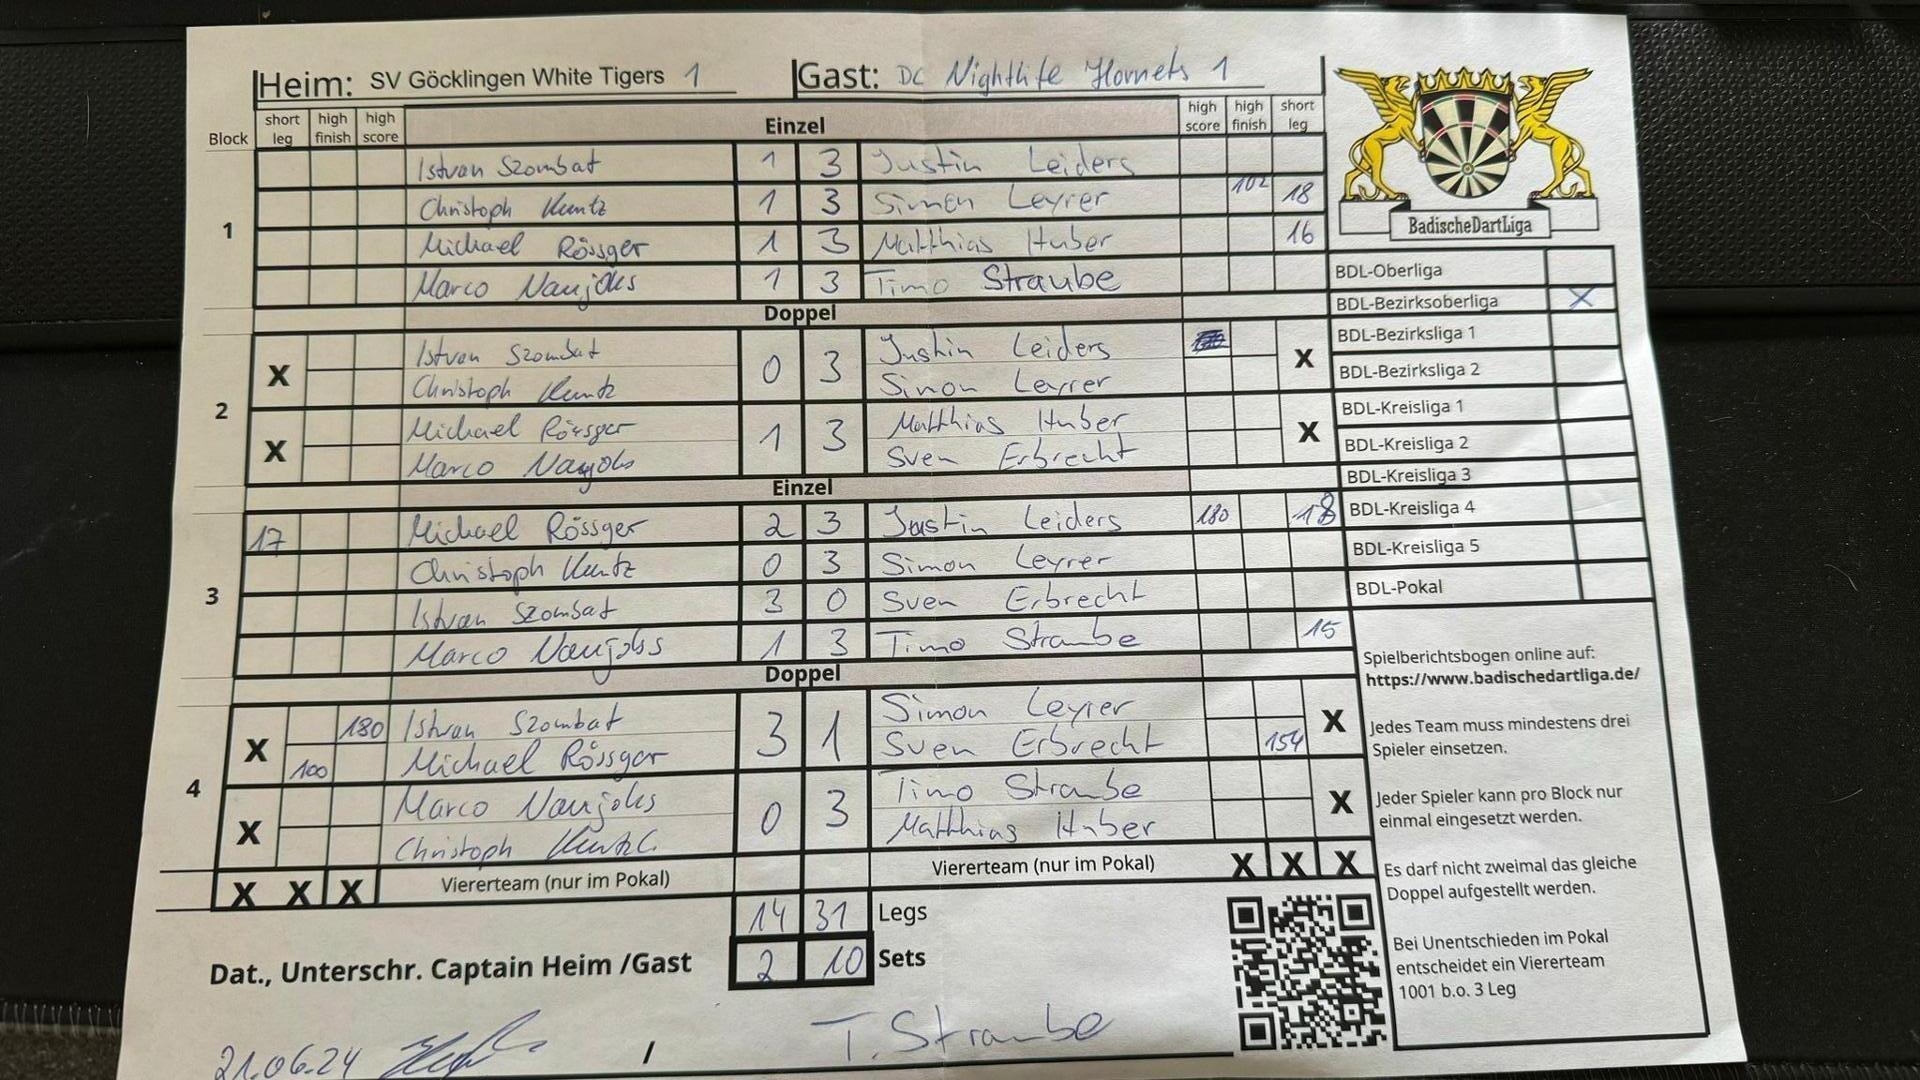 Heim: SV Göcklingen White Tigers 1 Gast: DC Nightlife Hornets 1
Block short leg high finish high score Einzel high score high finish short leg
1
Istvan Szombat 1 3 Justin Leiders
Christoph Kuntz 1 3 Simon Leyrer 102 18
Michael Rössger 1 3 Matthias Huber 16
Marco Naujoks 1 3 Timo Straube
Doppel
2
X Istvan Szombat 0 3 Justin Leiders X
Christoph Kuntz Simon Leyrer
X Michael Rössger 1 3 Matthias Huber X
Marco Naujoks Sven Erbrecht
Einzel
3
17 Michael Rössger 2 3 Justin Leiders 180 18
Christoph Kuntz 0 3 Simon Leyrer
Istvan Szombat 3 0 Sven Erbrecht
Marco Naujoks 1 3 Timo Straube 15
Doppel
4
X 180 Istvan Szombat 3 1 Simon Leyrer X
100 Michael Rössger Sven Erbrecht 154
X Marco Naujoks 0 3 Timo Straube X
Christoph Kuntz Matthias Huber
X X X Viererteam (nur im Pokal) Viererteam (nur im Pokal) X X X
14 31 Legs
2 10 Sets
Dat., Unterschr. Captain Heim /Gast
21.06.24 / T. Straube
BadischeDartLiga
BDL-Oberliga
BDL-Bezirksoberliga X
BDL-Bezirksliga 1
BDL-Bezirksliga 2
BDL-Kreisliga 1
BDL-Kreisliga 2
BDL-Kreisliga 3
BDL-Kreisliga 4
BDL-Kreisliga 5
BDL-Pokal
Spielberichtsbogen online auf:
https://www.badischedartliga.de/
Jedes Team muss mindestens drei
Spieler einsetzen.
Jeder Spieler kann pro Block nur
einmal eingesetzt werden.
Es darf nicht zweimal das gleiche
Doppel aufgestellt werden.
Bei Unentschieden im Pokal
entscheidet ein Viererteam
1001 b.o. 3 Leg